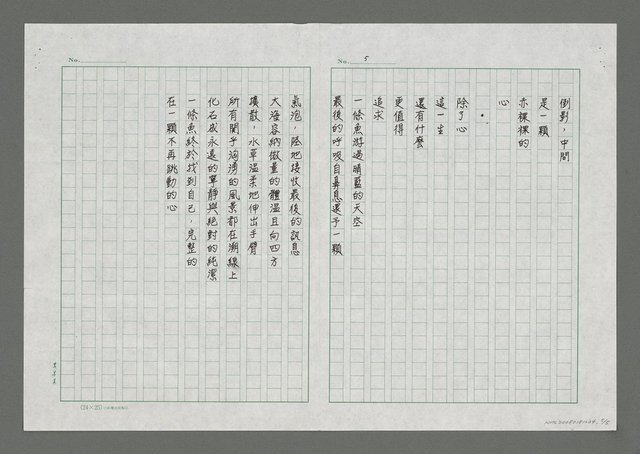 No. 5
倒影，中間
是一顆
赤裸裸的
心
•
除了心
這一生
還有什麼
更值得
追求
一條魚游過晴藍的天空
最後的呼吸自鼻息還予一顆
No.
氣泡，陸地接收最後的訊息
大海容納微量的體溫且向四方
擴散，水草溫柔地伸出手臂
所有關乎洶湧的風景都在潮線上
化石成永遠的寧靜與絕對的純潔
一條魚終於找到自己，完整的
在一顆不再跳動的心
(24×25)